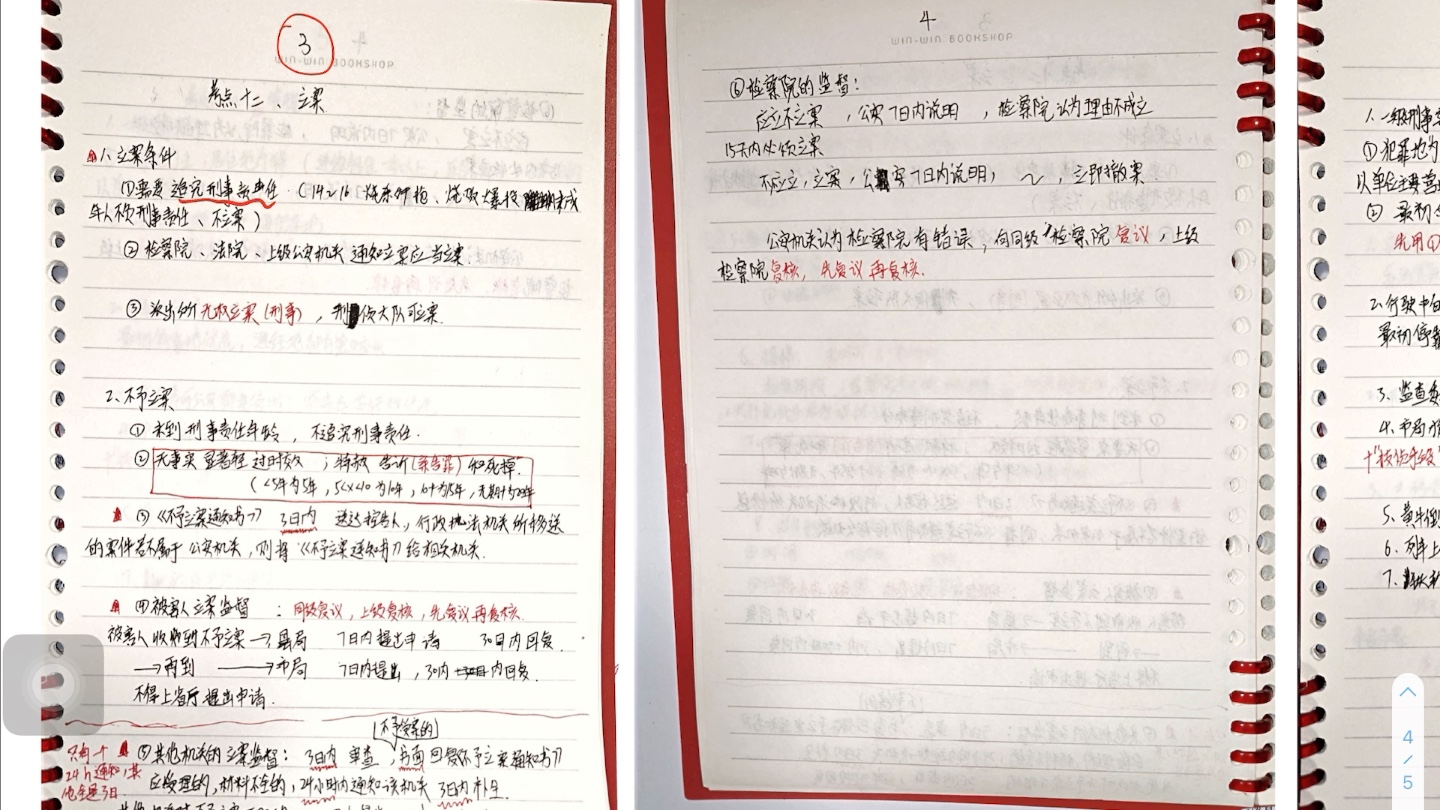 3
WIN-WIN BOOKSHOP
考点十二、立案
1、立案条件
①需要追究刑事责任（14岁
年人不负刑事责任、不立案）
②检察院、法院、上级公安机关通知立案应当立案.
③派出所无权立案(刑事)，刑侦大队可立案.
2、不予立案
①未到刑事责任年龄，不追究刑事责任.
②无事实显著轻过时效；特赦告诉(亲告罪)和死掉.
(<5年为5年，5<x<10为10年，10+为15年，无期+为20年
③《不予立案通知书》3日内送达控告人，行政执法机关所移送
的案件若不属于公安机关，则将《不予立案通知书》给相关机关.
④被害人立案监督：同级复议，上级复核，先复议再复核.
被害人收到不予立案→县局 7日内提出申请 30日内回复.
→再到→市局 7日内提出，30日内回复.
不得上省厅提出申请.
不予受案的
只有一个
24h通知，其
他全是3日
⑤其他机关的立案监督：3日内审查，书面回复《不予立案通知书》
应受理的，材料不全的，24小时内通知该机关3日内补全.
4
WIN-WIN BOOKSHOP
⑥检察院的监督：
应立不立案，公安7日内说明，检察院认为理由不成立
15天内必须立案
不应立，立案，公安7日内说明，～，立即撤案
公安机关认为检察院有错误，向同级检察院复议，上级
检察院复核，先复议再复核.
①犯罪地为
②最初
先用①
2、行驶中
最初停靠
3、监查
4、市局
5、黄牛倒
6、列车上
7、
4/5